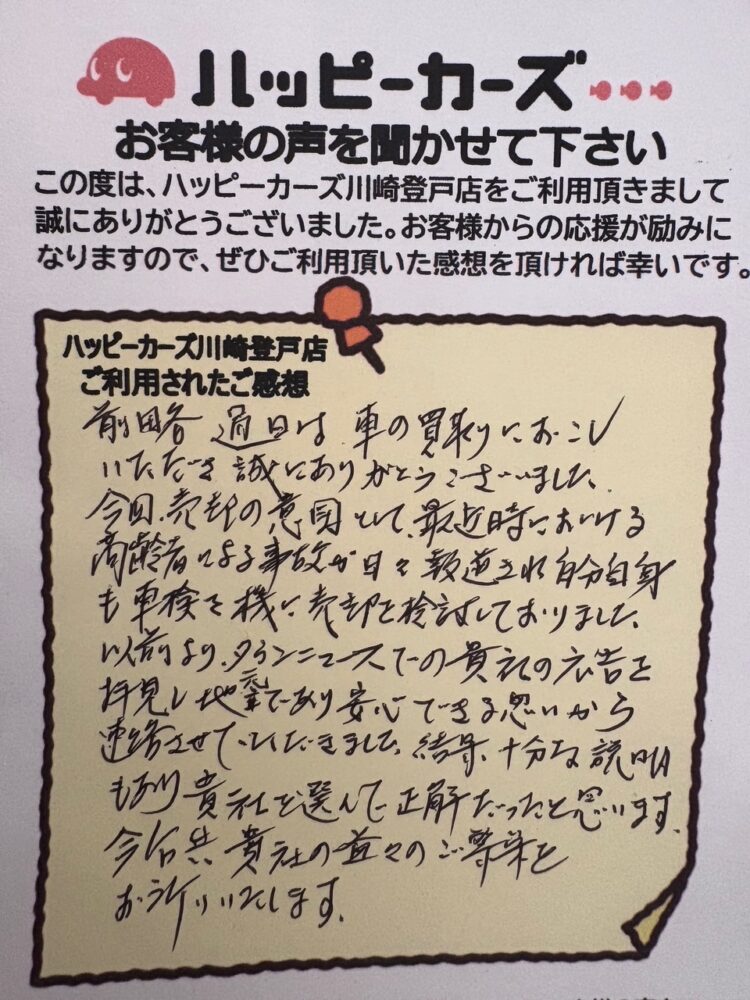 ハッピーカーズ・・・
お客様の声を聞かせて下さい
この度は、ハッピーカーズ川崎登戸店をご利用頂きまして
誠にありがとうございました。お客様からの応援が励みに
なりますので、ぜひご利用頂いた感想を頂ければ幸いです。
ハッピーカーズ川崎登戸店
ご利用されたご感想
前略 過日は 車の買取りにおこし
いただき誠にありがとうございました。
今回、売却の意図として、最近時における
高齢者による事故が日々報道され自分自身
も車検を機に売却を検討しておりました。
以前より、タウンニュースでの貴社の広告を
拝見し地元であり安心できる思いから
連絡させていただきました。結果、十分な説明
もあり貴社を選んで正解だったと思います。
今后共 貴社の益々のご繁栄を
お祈りいたします。